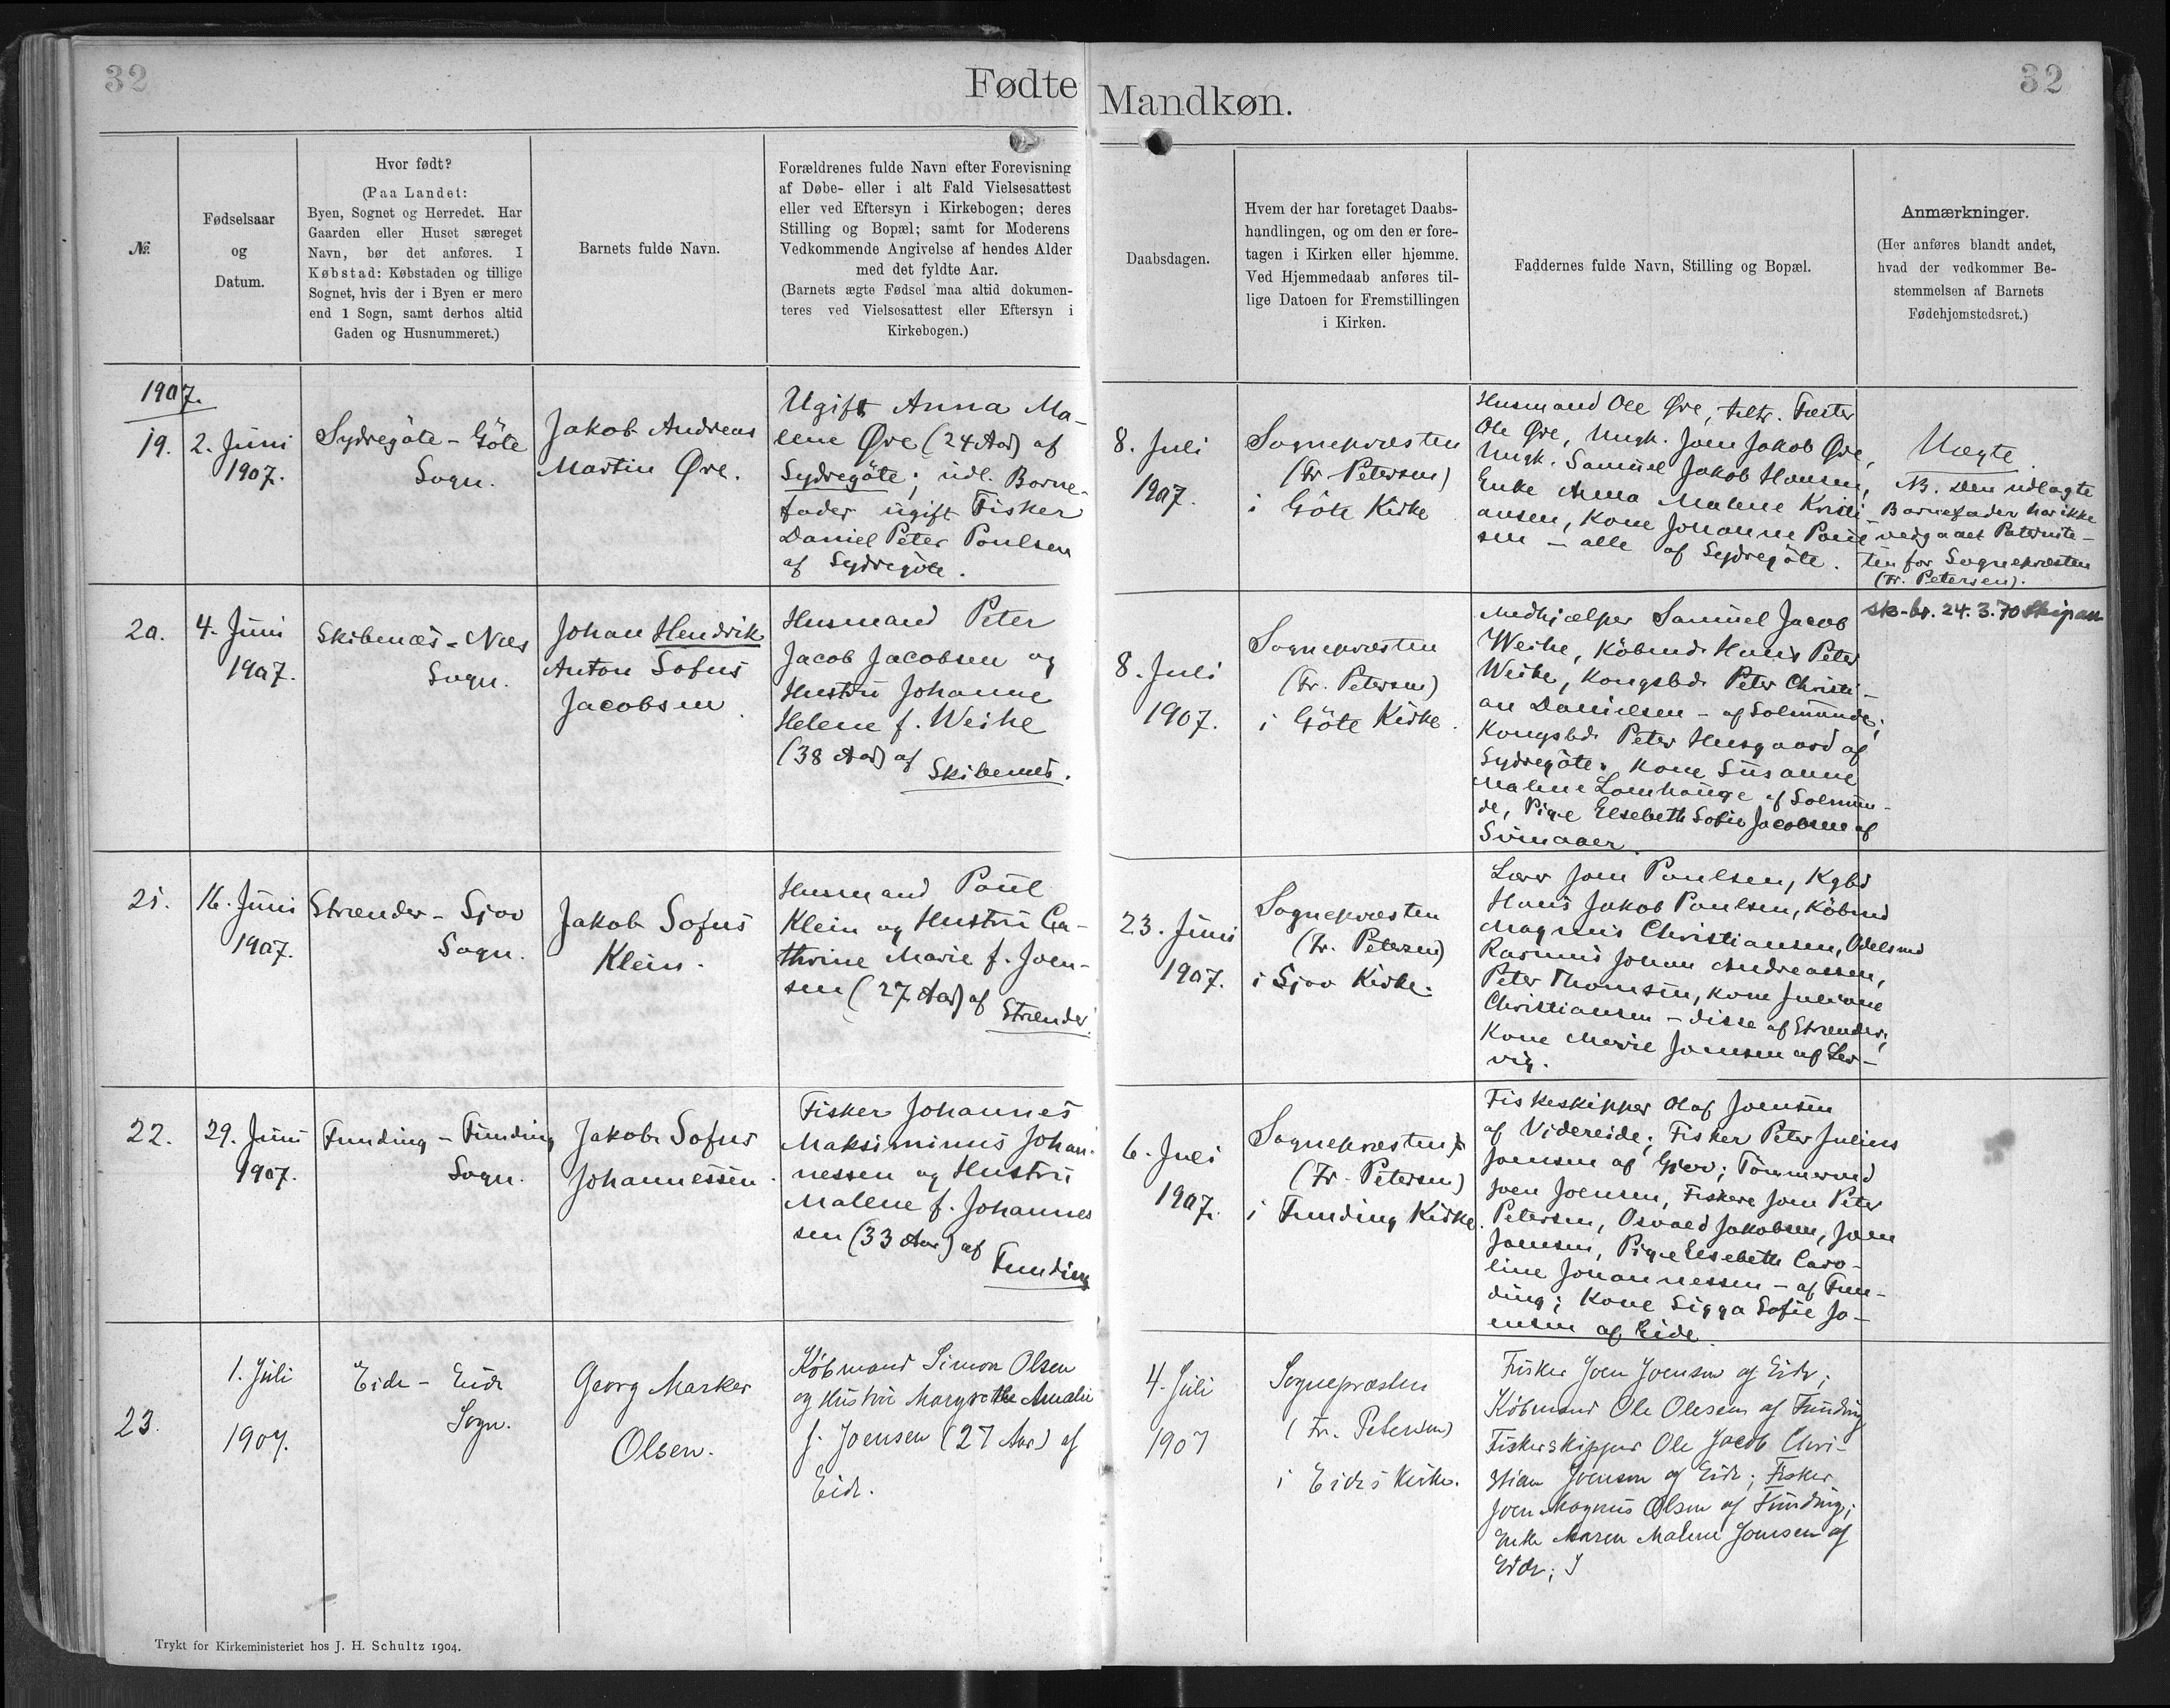 32
Fødte
Mandkøn.
32
№
Fødselsaar
og
Datum.
Hvor født?
(Paa Landet:
Byen, Sognet og Herredet. Har
Gaarden eller Huset særeget
Navn, bør det anføres. I
Købstad: Købstaden og tillige
Sognet, hvis der i Byen er mere
end 1 Sogn, samt derhos altid
Gaden og Husnummeret.)
Barnets fulde Navn.
Forældrenes fulde Navn efter Forevisning
af Døbe- eller i alt Fald Vielsesattest
eller ved Eftersyn i Kirkebogen; deres
Stilling og Bopæl; samt for Moderens
Vedkommende Angivelse af hendes Alder
med det fyldte Aar.
(Barnets ægte Fødsel maa altid dokumen-
teres ved Vielsesattest eller Eftersyn i
Kirkebogen.)
Daabsdagen.
Hvem der har foretaget Daabs-
handlingen, og om den er fore-
tagen i Kirken eller hjemme.
Ved Hjemmedaab anføres til-
lige Datoen for Fremstillingen
i Kirken.
Faddernes fulde Navn, Stilling og Bopæl.
Anmærkninger.
(Her anføres blandt andet,
hvad der vedkommer Be-
stemmelsen af Barnets
Fødehjemstedsret.)
1907.
19.
2. Juni
1907.
Sydregöte - Göte
Sogn.
Jakob Andreas
Martin Øre.
Ugift Anna Ma-
lene Øre (24 Aar) af
Sydregöte; udl. Barne-
fader ugift Fisker
Daniel Peter Poulsen
af Sydregöte.
8. Juli
1907.
Sognepræsten
(Fr. Petersen)
i Göte Kirke
Husmand Ole Øre, Fæster
Ole Øre, Ungk. Joen Jakob Øre,
Ungk. Samuel Jakob Hansen,
Enke Anna Malene Kristi-
ansen, Kone Johanne Poul-
sen - alle af Sydregöte.
Uægte.
NB. Den udlagte
Barnefader har ikke
vedgaaet Paternite-
ten for Sognepræsten
(Fr. Petersen).
20.
4. Juni
1907.
Skibenæs - Næs
Sogn.
Johan Hendrik
Anton Sofus
Jacobsen
Husmand Peter
Jacob Jacobsen og
Hustru Johanne
Helene f. Weihe
(38 Aar) af
Skibenæs.
8. Juli
1907.
Sognepræsten
(Fr. Petersen)
i Göte Kirke.
Medhjælper Samuel Jacob
Weihe, Købmd. Hans Peter
Weihe, Kongsbd. Peter Christi-
an Danielsen - af Solmunde;
Kongsbd. Peter Husgaard af
Sydregöte. Kone Susanne
Malene Lamhauge af Solmun-
de, Pige Elsebeth Sofie Jacobsen af
Svinaaer.
sk-br. 24.3.70
21.
16. Juni
1907.
Strænder - Sjov
Sogn.
Jakob Sofus
Klein.
Husmand Poul
Klein og Hustru Ca-
thrine Marie f. Joen-
sen (27 Aar) af
Strænder.
23. Juni
1907.
Sognepræsten
(Fr. Petersen)
i Sjov Kirke.
Lærer Joen Poulsen, Kgbd
Hans Jakob Poulsen, Købmd
Magnus Christiansen, Odelsmd
Rasmus Johan Andreassen,
Peter Thomsen, Kone Juliane
Christiansen - disse af Strænder;
Kone Marie Joensen af Ler-
vig.
22.
29. Juni
1907.
Funding - Funding
Sogn.
Jakob Sofus
Johannessen.
Fisker Johannes
Maksiminus Johan-
nessen og Hustru
Malene f. Johannes
sen (33 Aar) af
Funding
6. Juli
1907.
Sognepræsten
(Fr. Petersen)
i Funding Kirke.
Fiskeskipper Olaf Joensen
af Videreide; Fisker Peter Julius
Joensen af Gjov; Tømmermd
Joen Joensen, Fiskere Joen Peter
Petersen, Osvald Jakobsen, Joen
Joensen, Pige Elsebeth Caro-
line Johannessen - af Fun-
ding; Kone Sigga Sofie Jo-
ensen af Eide.
23.
1. Juli
1907.
Eide - Eide
Sogn.
Georg Marker
Olsen.
Købmand Simon Olsen
og Hustru Margrethe Amalie
f. Joensen (27 Aar) af
Eide.
4. Juli
1907
Sognepræsten
(Fr. Petersen)
i Eides Kirke.
Fisker Joen Joensen af Eide;
Købmand Ole Olesen af Funding
Fiskerskipper Ole Jacob Chri-
stian Joensen af Eide; Fisker
Joen Magnus Olsen af Funding;
Enke Maren Malene Joensen af
Eide; J
Trykt for Kirkeministeriet hos J. H. Schultz 1904.